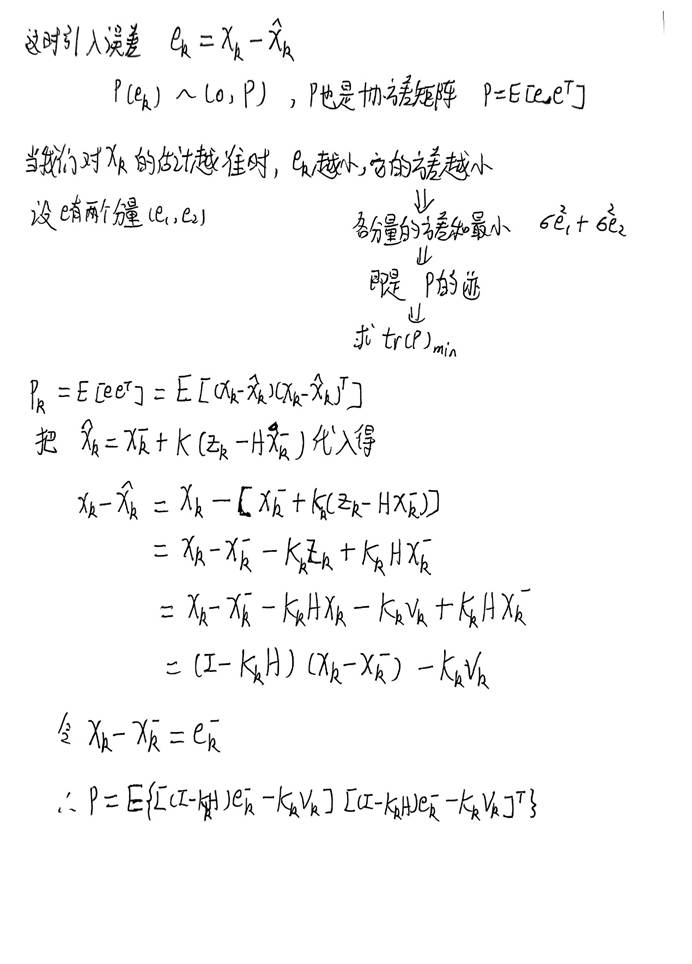 这时引入误差 e_k = x_k - x̂_k
P(e_k) ~ (0, P) , P也是协方差矩阵 P=E[e e^T]
当我们对 x_k 的估计越准时, e_k越小, 它的方差越小
⇓
设 e有两个分量(e_1, e_2) 各分量的方差和最小 σ²e_1 + σ²e_2
⇓
即是 P的迹
⇓
求 tr(P)_min
P_k = E[ee^T] = E[(x_k-x̂_k)(x_k-x̂_k)^T]
把 x̂_k = x̄_k + K(z_k - Hx̂_k^-) 代入得
x_k - x̂_k = x_k - [x_k^- + K_k(z_k - Hx_k^-)]
= x_k - x_k^- - K_k z_k + K_k H x_k^-
= x_k - x_k^- - K_k H x_k - K_k v_k + K_k H x_k^-
= (I - K_k H) (x_k - x_k^-) - K_k v_k
令 x_k - x_k^- = e_k^-
∴ P = E{[(I-K_kH)e_k^- - K_k v_k] [(I-K_kH)e_k^- - K_k v_k]^T}